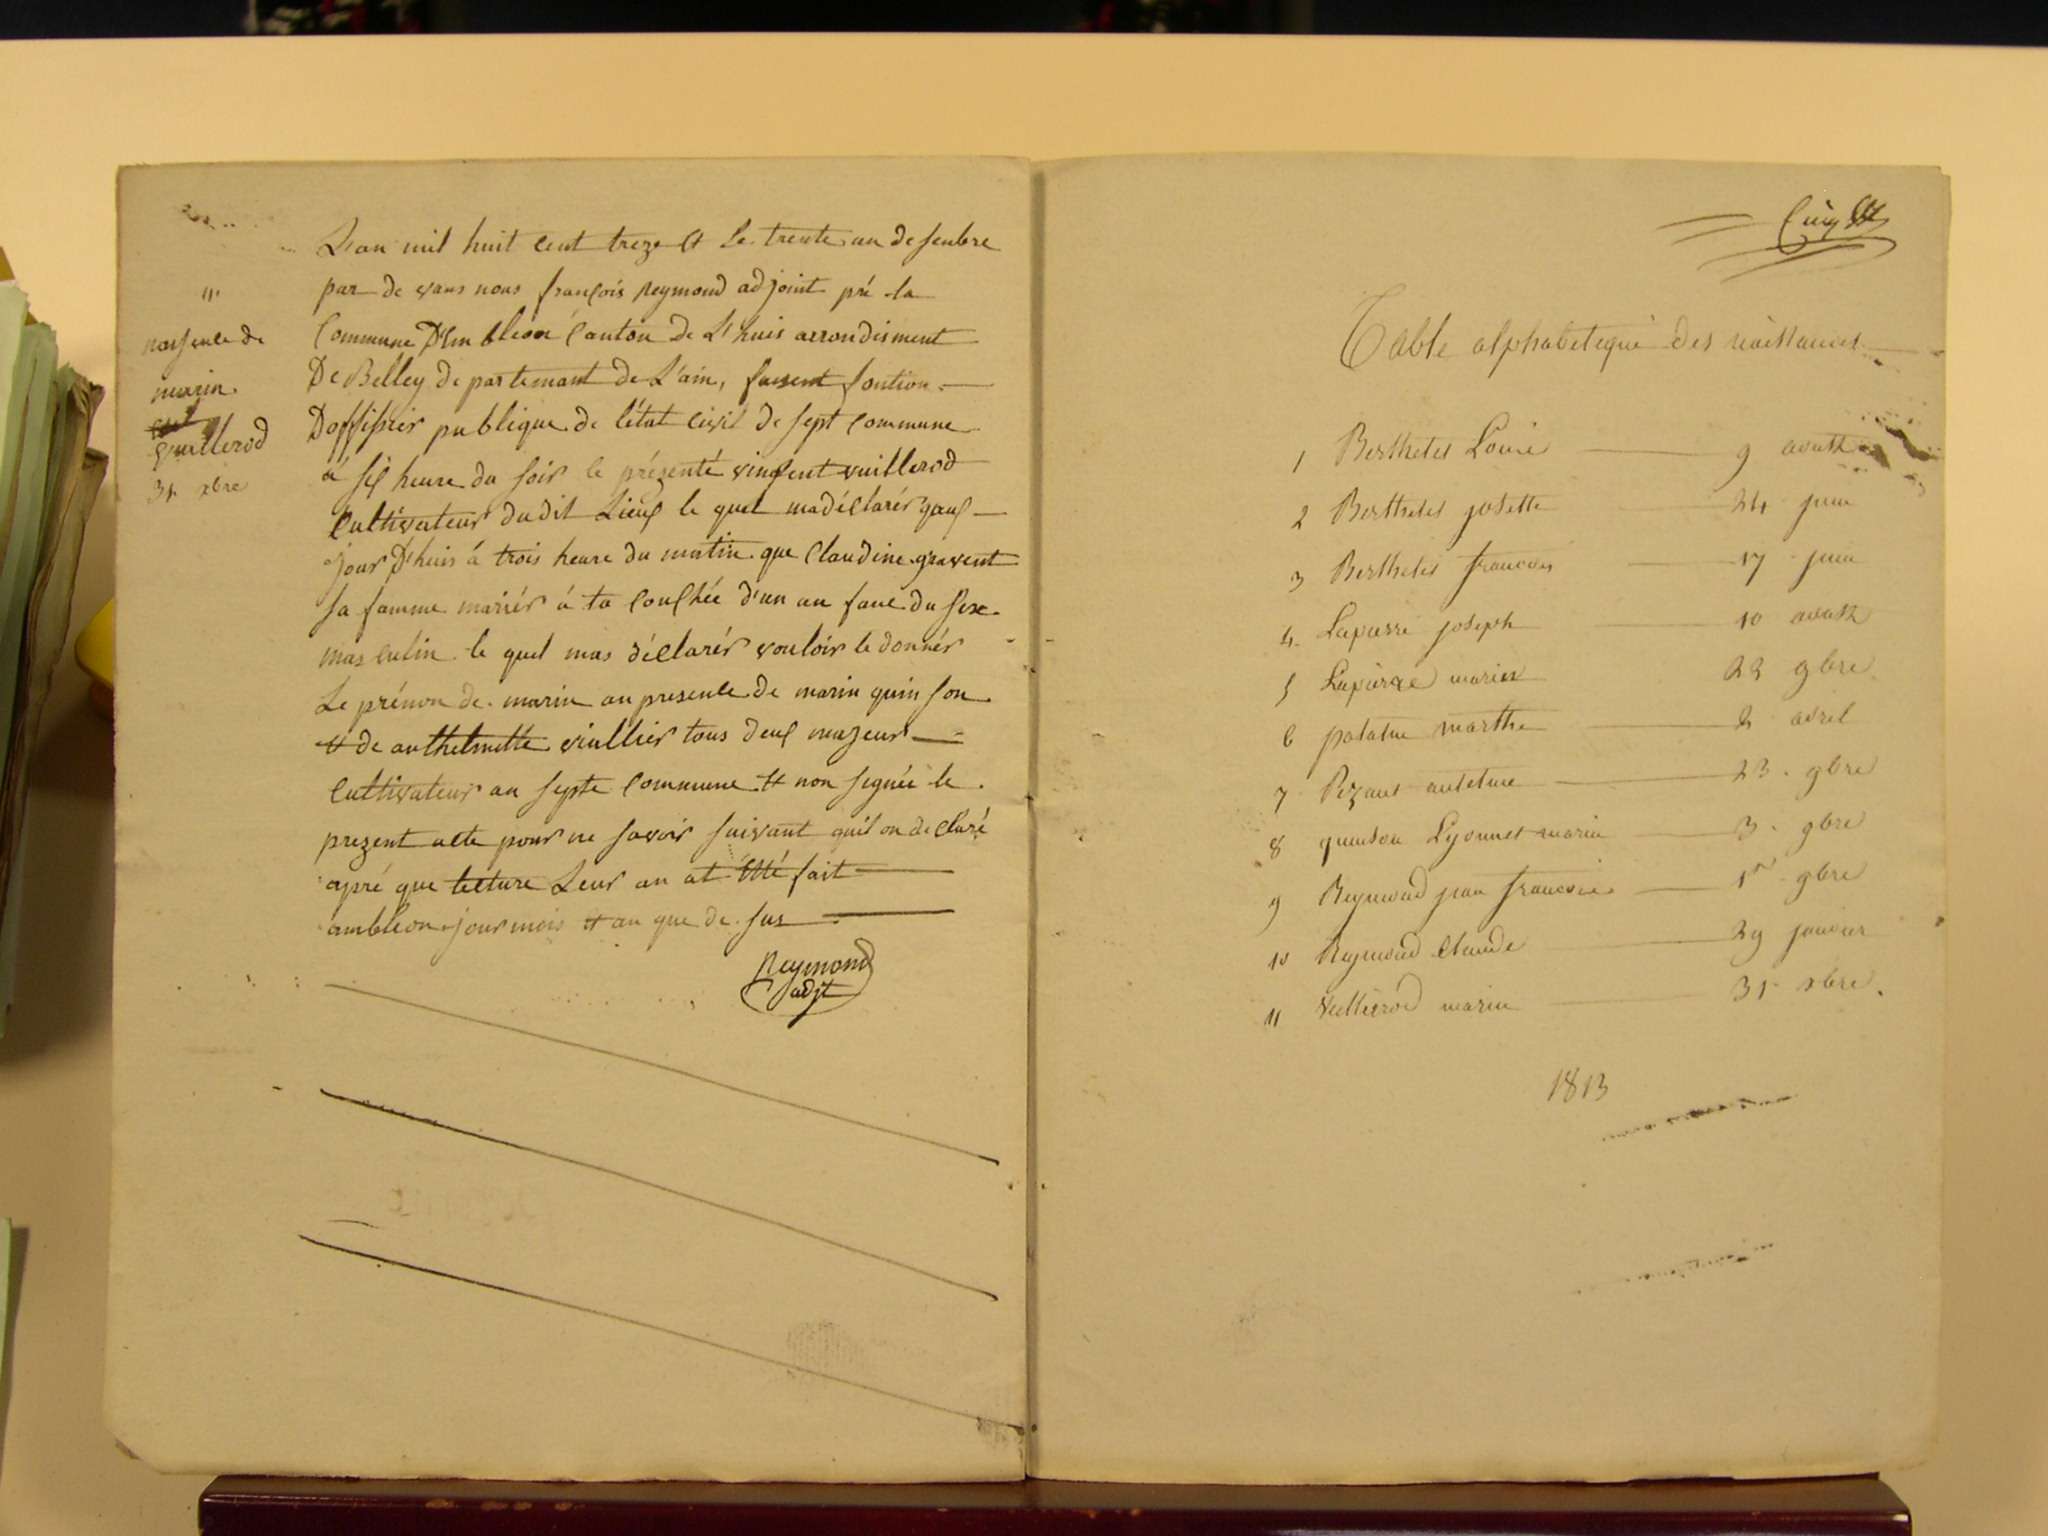 11.
naissence de
marin.
Vuillerod
31. xbre
L'an mil huit cent treze et le trente un desenbre
par de vans nous françois Reymond adjoint pré la
Commune D'Embleon Canton de L'huis arrondisment
De Belley departemant de L'ain, faisent fontion
D'offisier publique de l'état civil de sept commune
à six heure du soir le présenté vinsent vuillerod
Cultivateur dudit Lieux le quel madéclarér gauj
jour D'huis à trois heure du matin que Claudine gravent
sa famme mariér à ta couchée d'un an fane du sexe
masculin le quel mas déclarér vouloir le donnér
Le prénon de marin an presence de marin quinson
et de anthelmette viullier tous deux majeur
Cultivateur au septe Commune et non segnée le
prezent acte pour ne savoir suivant quil on declaré
apré que lecture Leur an at étté fait
ambleon jour mois et an que de sus
Reymond
adjt
Cinq
Table alphabeteque des naissances
1 Berthelet Louise 9 aoust
2 Berthelet josette 24 juin
3 Berthelet francois 17 juin
4 Lapierre joseph 10 aoust
5 Lapierre marin 23 9bre
6 marthe 2 avril
7 Pezant 23. 9bre
8 quinson Lyonnet marin 3. 9bre
9 Reymond jean francois 1er 9bre
10 Reymond Claude 29 janvier
11 Vullierod marin 31 xbre.
1813